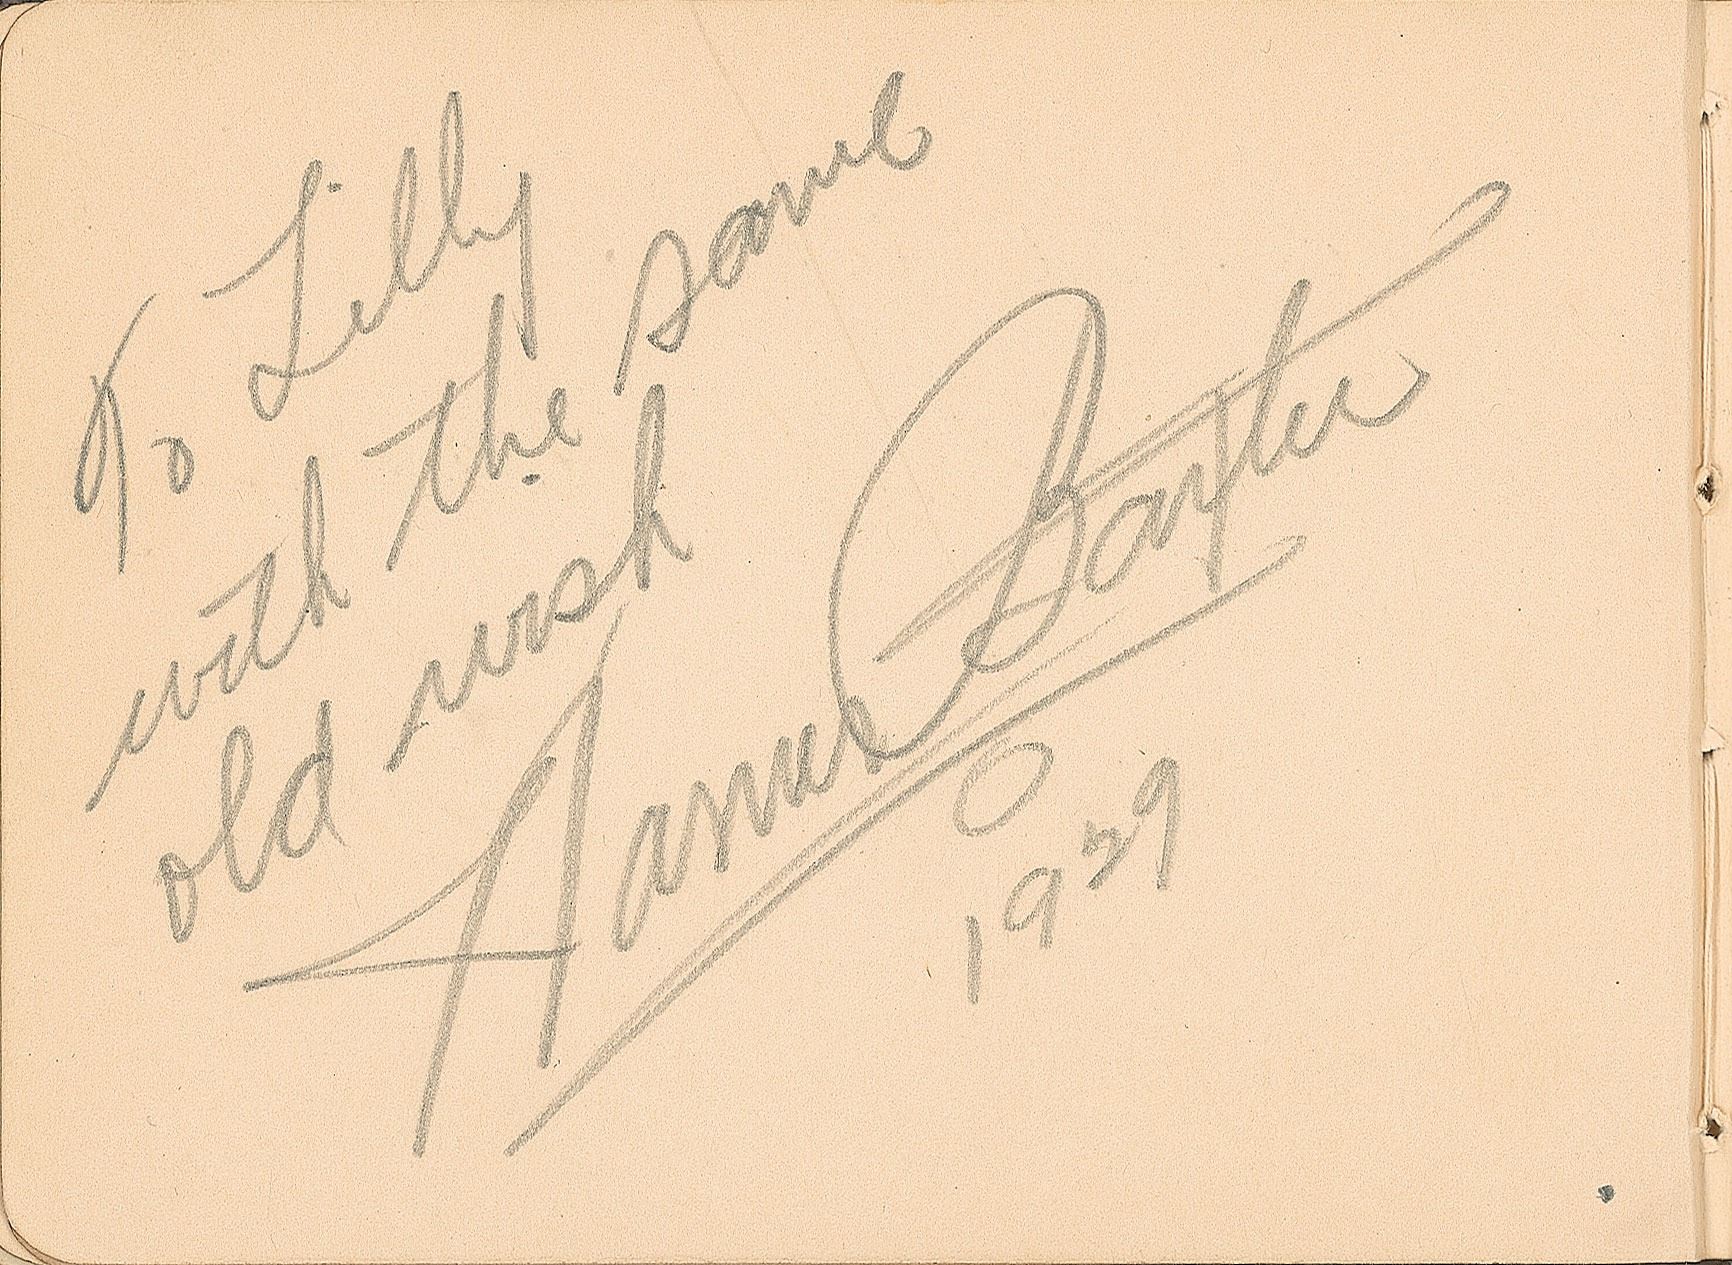 To Lilly
with the same
old wish
Warner Baxter
1929